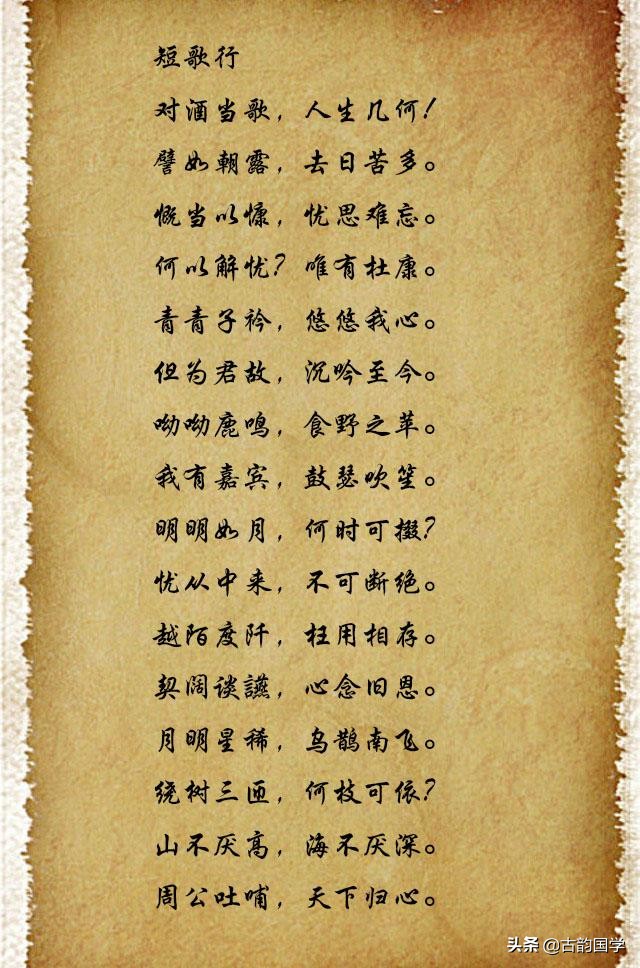 短歌行
对酒当歌，人生几何！
譬如朝露，去日苦多。
慨当以慷，忧思难忘。
何以解忧？唯有杜康。
青青子衿，悠悠我心。
但为君故，沉吟至今。
呦呦鹿鸣，食野之苹。
我有嘉宾，鼓瑟吹笙。
明明如月，何时可掇？
忧从中来，不可断绝。
越陌度阡，枉用相存。
契阔谈讌，心念旧恩。
月明星稀，乌鹊南飞。
绕树三匝，何枝可依？
山不厌高，海不厌深。
周公吐哺，天下归心。
头条 @古韵国学